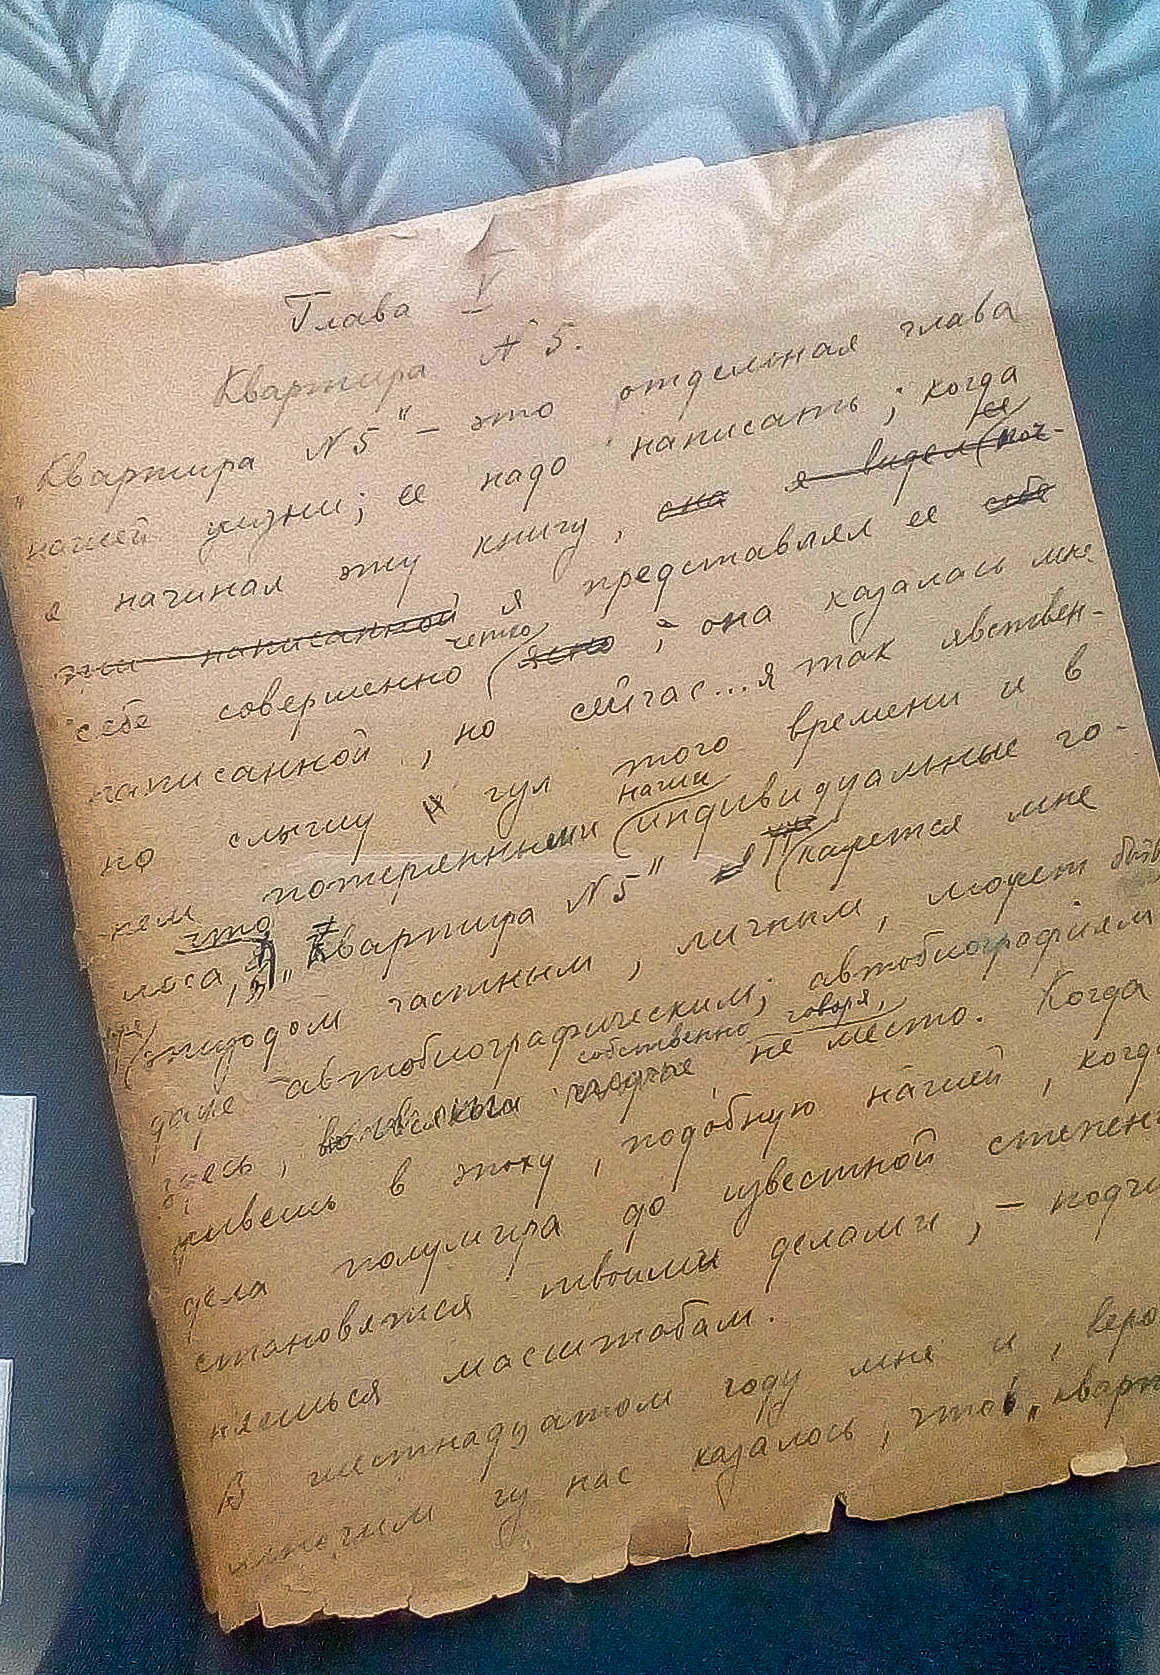 Глава V
Квартира № 5.
„Квартира № 5" – это отдельная глава
нашей жизни; ее надо написать; когда
я начинал эту книгу, она я видел ее поч-
ти написанной я представлял ее себе
себе совершенно четко ясно; она казалась мне
написанной, но сейчас... я так явствен-
но слышу гул этого времени и в
нем потерянными наши индивидуальные го-
лоса, что „Квартира № 5" кажется мне
уже эпизодом частным, личным, может быть
даже автобиографическим; автобиографиям
здесь, собственно говоря, не место. Когда
живешь в эпоху, подобную нашей, когда
дела полумира до известной степени
становятся твоими делами, – подчи-
няешься масштабам.
В шестнадцатом году мне и, веро
многим из нас казалось, что „кварт